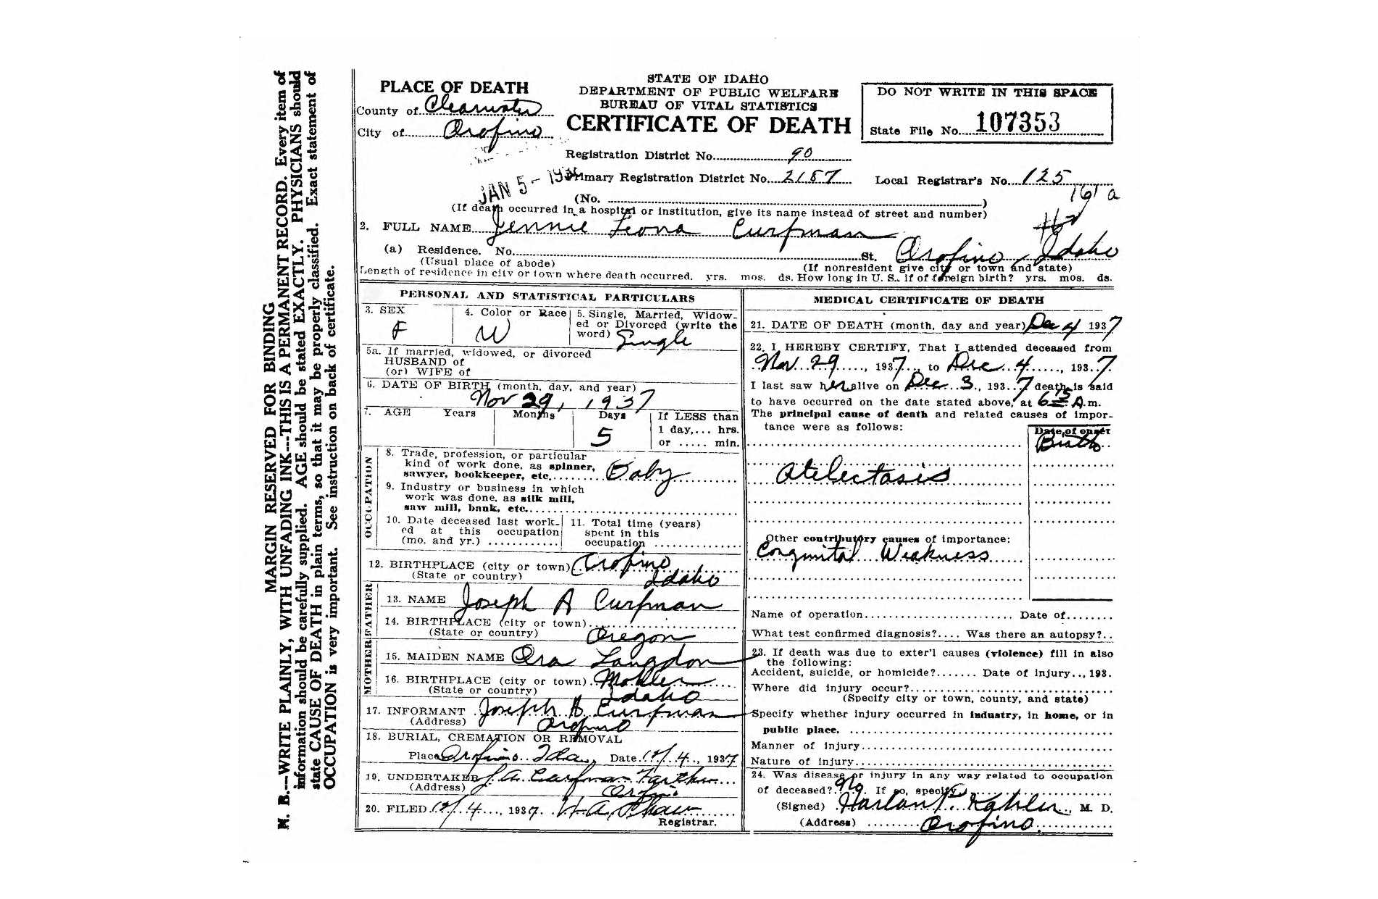 MARGIN RESERVED FOR BINDING
N. B.—WRITE PLAINLY, WITH UNFADING INK---THIS IS A PERMANENT RECORD. Every item of
information should be carefully supplied. AGE should be stated EXACTLY. PHYSICIANS should
state CAUSE OF DEATH in plain terms, so that it may be properly classified. Exact statement of
OCCUPATION is very important. See instruction on back of certificate.
PLACE OF DEATH
County of Clearwater
City of Orofino
STATE OF IDAHO
DEPARTMENT OF PUBLIC WELFARE
BUREAU OF VITAL STATISTICS
CERTIFICATE OF DEATH
DO NOT WRITE IN THIS SPACE
State File No. 107353
Registration District No. 90
JAN 5 -
Primary Registration District No. 2187
Local Registrar's No. 125
161a
(No. )
(If death occurred in a hospital or institution, give its name instead of street and number)
2. FULL NAME Jennie Leona Curfman
(a) Residence. No. St. Orofino, Idaho
(Usual place of abode) (If nonresident give city or town and state)
Length of residence in city or town where death occurred. yrs. mos. ds. How long in U. S., if of foreign birth? yrs. mos. ds.
PERSONAL AND STATISTICAL PARTICULARS
3. SEX F
4. Color or Race W
5. Single, Married, Widow-
ed or Divorced (write the
word) Single
5a. If married, widowed, or divorced
HUSBAND of
(or) WIFE of
6. DATE OF BIRTH (month, day, and year)
Nov 29, 1937
7. AGE Years Months Days 5
If LESS than
1 day,... hrs.
or ..... min.
OCCUPATION
8. Trade, profession, or particular
kind of work done, as spinner,
sawyer, bookkeeper, etc. Baby
9. Industry or business in which
work was done, as silk mill,
saw mill, bank, etc.
10. Date deceased last work-
ed at this occupation
(mo. and yr.)
11. Total time (years)
spent in this
occupation
12. BIRTHPLACE (city or town) Orofino
(State or country) Idaho
FATHER
13. NAME Joseph A Curfman
14. BIRTHPLACE (city or town)
(State or country) Oregon
MOTHER
15. MAIDEN NAME Ora Langdon
16. BIRTHPLACE (city or town) Mohler
(State or country) Idaho
17. INFORMANT Joseph A. Curfman
(Address) Orofino
18. BURIAL, CREMATION OR REMOVAL
Place Orofino Ida., Date 12/4, 1937
19. UNDERTAKER J. A. Curfman Father
(Address) Orofino
20. FILED 12/4, 1937. W. A. Shaw
Registrar.
MEDICAL CERTIFICATE OF DEATH
21. DATE OF DEATH (month, day and year) Dec 4 1937
22. I HEREBY CERTIFY, That I attended deceased from
Nov. 29, 1937, to Dec. 4, 1937.
I last saw her alive on Dec 3, 1937 death is said
to have occurred on the date stated above, at A.m.
The principal cause of death and related causes of impor-
tance were as follows:
Date of onset
Birth
Atelectasis
Other contributory causes of importance:
Congenital Weakness
Name of operation Date of
What test confirmed diagnosis?.... Was there an autopsy?..
23. If death was due to exter'l causes (violence) fill in also
the following:
Accident, suicide, or homicide?....... Date of injury.., 193.
Where did injury occur?
(Specify city or town, county, and state)
Specify whether injury occurred in industry, in home, or in
public place.
Manner of injury
Nature of injury
24. Was disease or injury in any way related to occupation
of deceased? No. If so, specify
(Signed) Harlan P. Kahler, M. D.
(Address) Orofino.